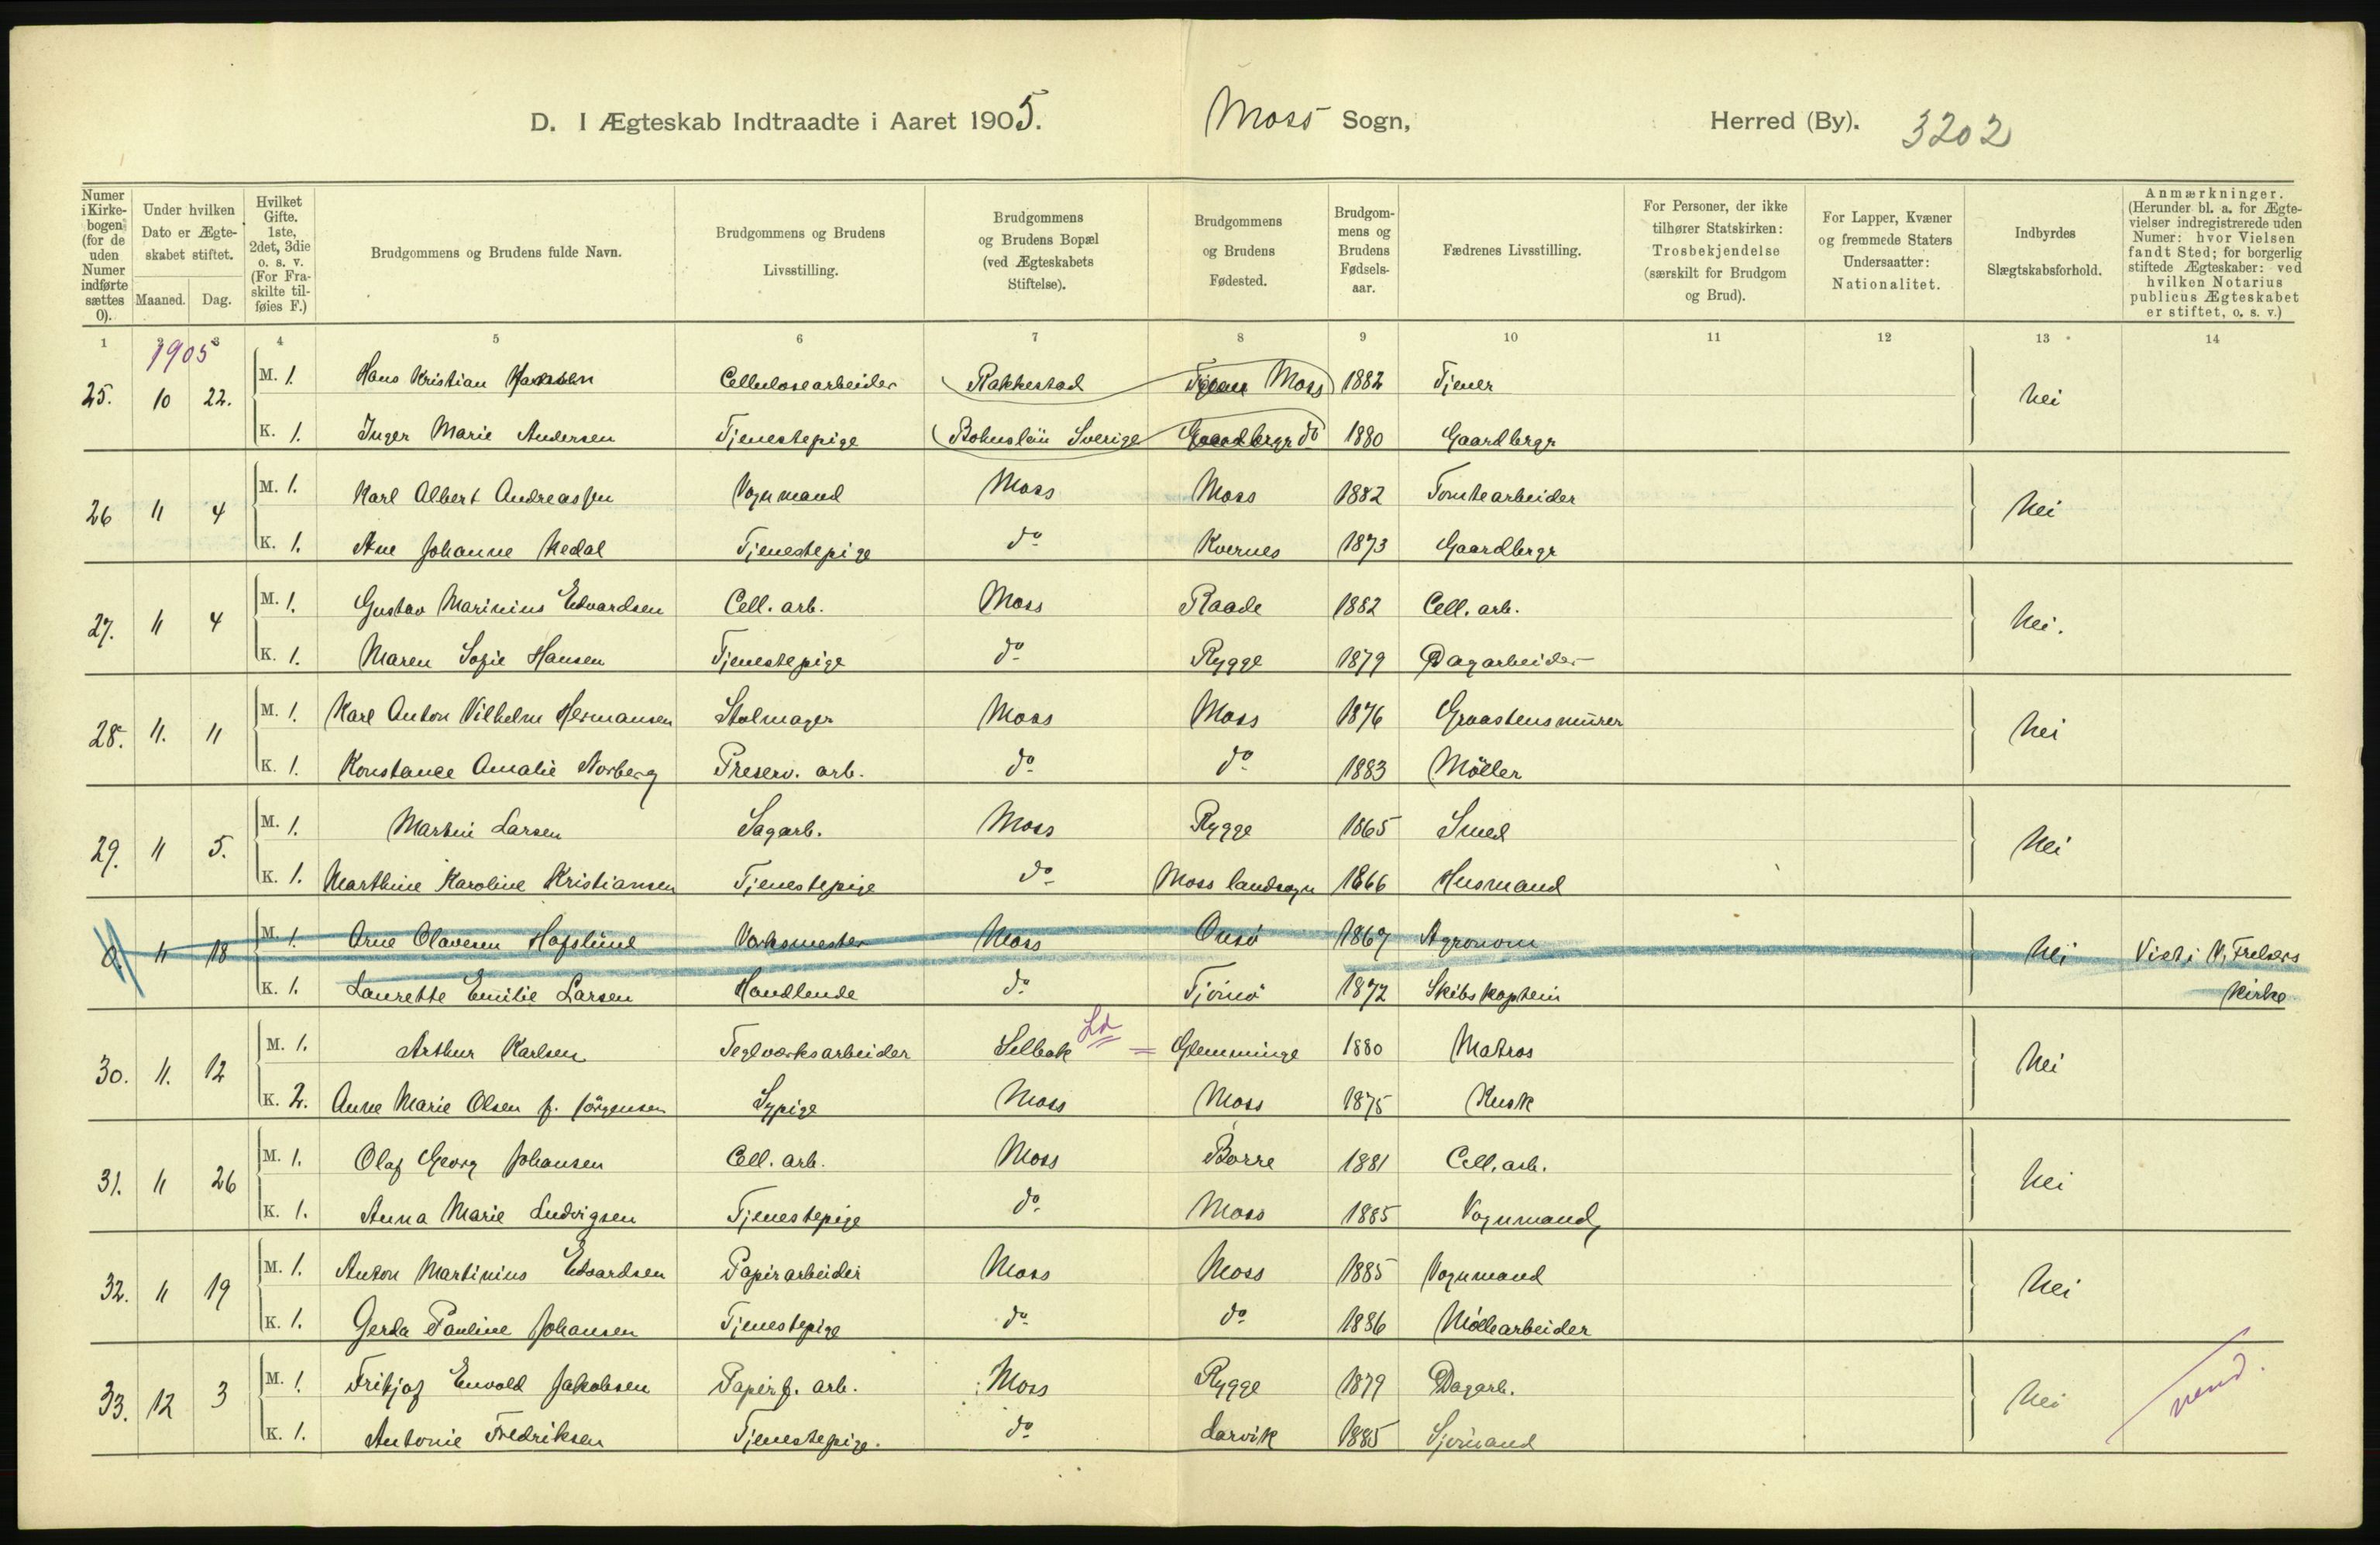 D. I Ægteskab Indtraadte i Aaret 1905. Moss Sogn, Herred (By). 3202
Numer i Kirkebogen (for de uden Numer indførte sættes 0).
Under hvilken Dato er Ægteskabet stiftet. Maaned. Dag.
Hvilket Gifte. 1ste, 2det, 3die o. s. v. (For Fraskilte tilføies F.)
Brudgommens og Brudens fulde Navn.
Brudgommens og Brudens Livsstilling.
Brudgommens og Brudens Bopæl (ved Ægteskabets Stiftelse).
Brudgommens og Brudens Fødested.
Brudgommens og Brudens Fødselsaar.
Fædrenes Livsstilling.
For Personer, der ikke tilhører Statskirken: Trosbekjendelse (særskilt for Brudgom og Brud).
For Lapper, Kvæner og fremmede Staters Undersaatter: Nationalitet.
Indbyrdes Slægtskabsforhold.
Anmærkninger. (Herunder bl. a. for Ægtevielser indregistrerede uden Numer: hvor Vielsen fandt Sted; for borgerlig stiftede Ægteskaber: ved hvilken Notarius publicus Ægteskabet er stiftet, o. s. v.)
1 2 3 4 5 6 7 8 9 10 11 12 13 14
1905
25. 10 22. M. 1. Hans Kristian Cellulosearbeider Rakkestad Moss 1882 Tjener nei
K. 1. Inger Marie Andersen Tjenestepige Bohuslän Sverige do 1880 Gaardbrgr
26 11 4 M. 1. Karl Albert Andreassen Vognmand Moss Moss 1882 Tomtearbeider Nei
K. 1. Ane Johanne Nedal Tjenestepige do Kvernes 1873 Gaardbrgr
27. 11 4 M. 1. Gustav Marinius Edvardsen Cell. arb. Moss Raade 1882 Cell. arb. Nei.
K. 1. Maren Sofie Hansen Tjenestepige do Rygge 1879 Dagarbeider
28. 11. 11 M. 1. Karl Anton Vilhelm Hermansen Stolmager Moss Moss 1876 Graastensmurer Nei
K. 1. Konstance Amalie Norberg Preserv. arb. do do 1883 Möller
29. 11 5. M. 1. Martin Larsen Sagarb. Moss Rygge 1865 Smed Nei
K. 1. Marthine Karoline Kristiansen Tjenestepige do Moss landsogn 1866 Husmand
0. 11 18 M. 1. Arne Olavesen Hafslund Verksmester Moss Onsö 1867 Agronom Nei Viet i V. Frelsers
K. 1. Laurette Emilie Larsen Handlende do Tjömö 1872 Skibskaptein Kirke
30. 11. 12 M. 1. Arthur Karlsen Teglværksarbeider Selbak Ld = Glemminge 1880 Matros Nei
K. 2. Anne Marie Olsen f. Jörgensen Sypige Moss Moss 1875 Kusk
31. 11 26 M. 1. Olaf Georg Johansen Cell. arb. Moss Borre 1881 Cell. arb. Nei
K. 1. Anna Marie Ludvigsen Tjenestepige do Moss 1885 Vognmand
32. 11 19 M. 1. Anton Martinius Edvardsen Papirarbeider Moss Moss 1885 Vognmand Nei
K. 1. Gerda Pauline Johansen Tjenestepige do do 1886 Möllearbeider
33. 12 3 M. 1. Fritjof Envold Jakobsen Papirf. arb. Moss Rygge 1879 Dagarb. Nei vend.
K. 1. Antonie Fredriksen Tjenestepige. do Larvik 1885 Sjömand